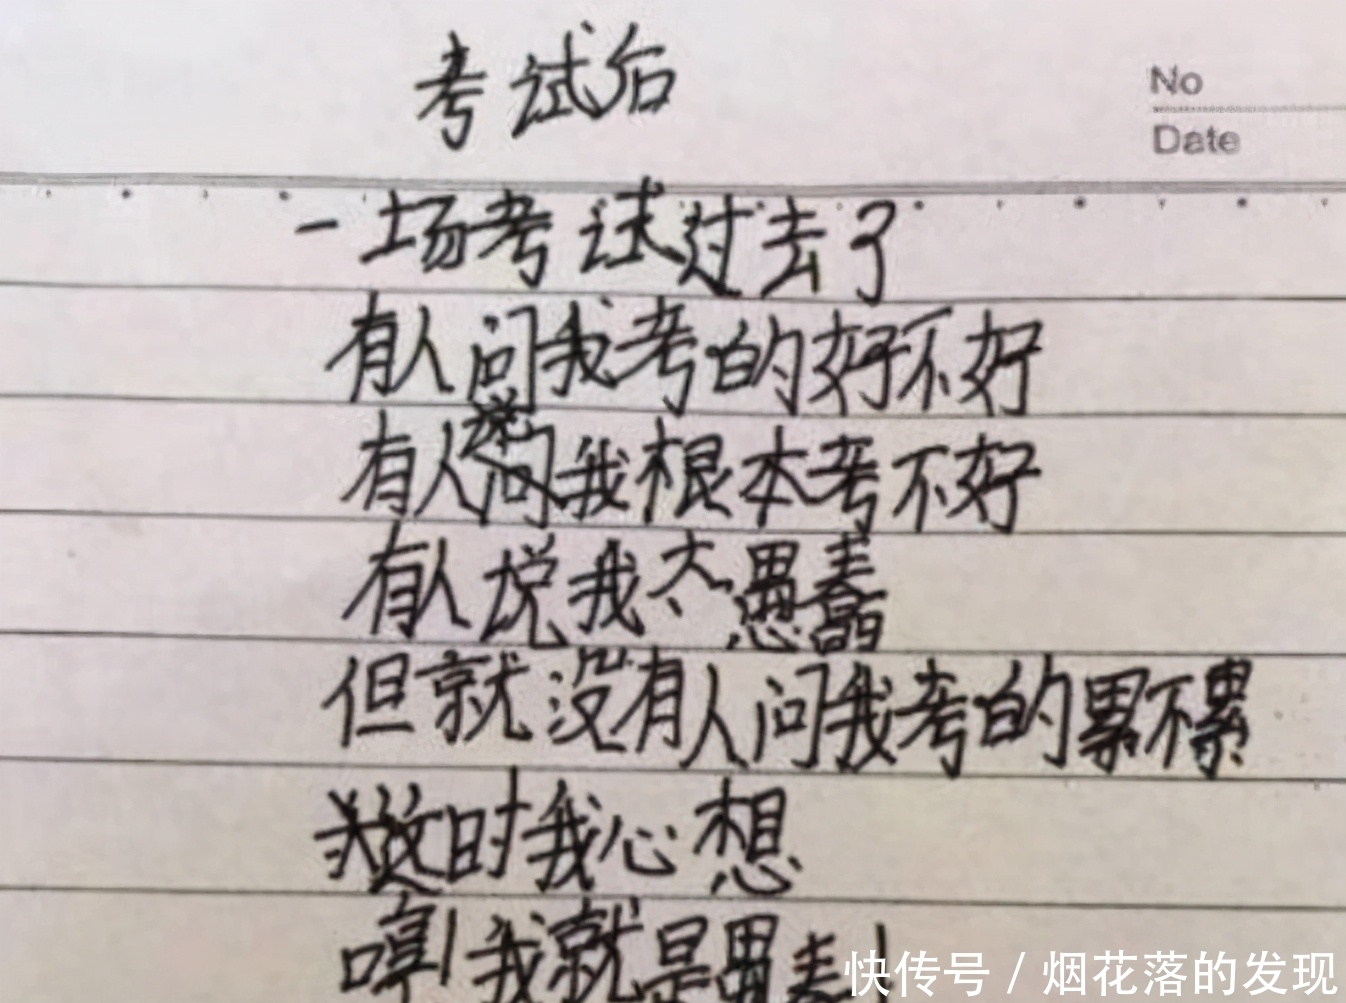 考试后
No
Date
一场考试过去了
有人问我考的好不好
有人问我根本考不好
有人说我太愚蠢
但就没有人问我考的累不累
时我心想
哼!我就是愚蠢!
快传号/烟花落的发现